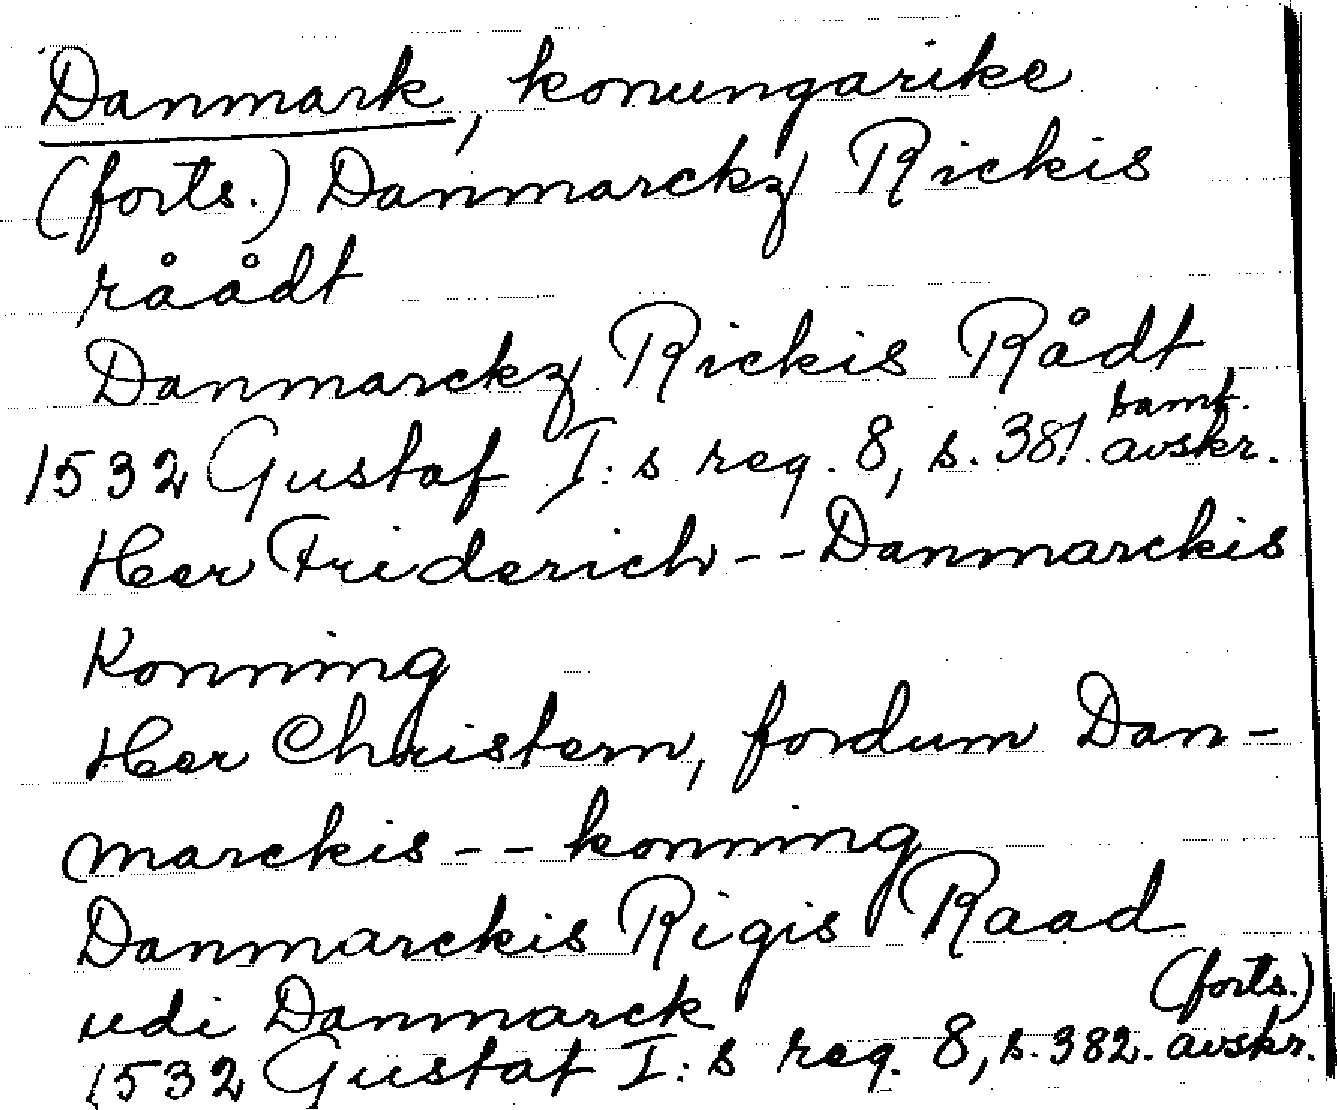 Danmark, konungarike
(forts.) Danmarckz Rickis
råådt
Danmarckz Rickis Rådt
1532 Gustaf I:s reg. 8, s. 381. samt. avskr.
Her Friderich -- Danmarckis
Konning
Her Christern, fordum Dan-
marckis -- konning
Danmarckis Rigis Raad
udi Danmarck (forts.)
1532 Gustaf I:s reg. 8, s. 382. avskr.